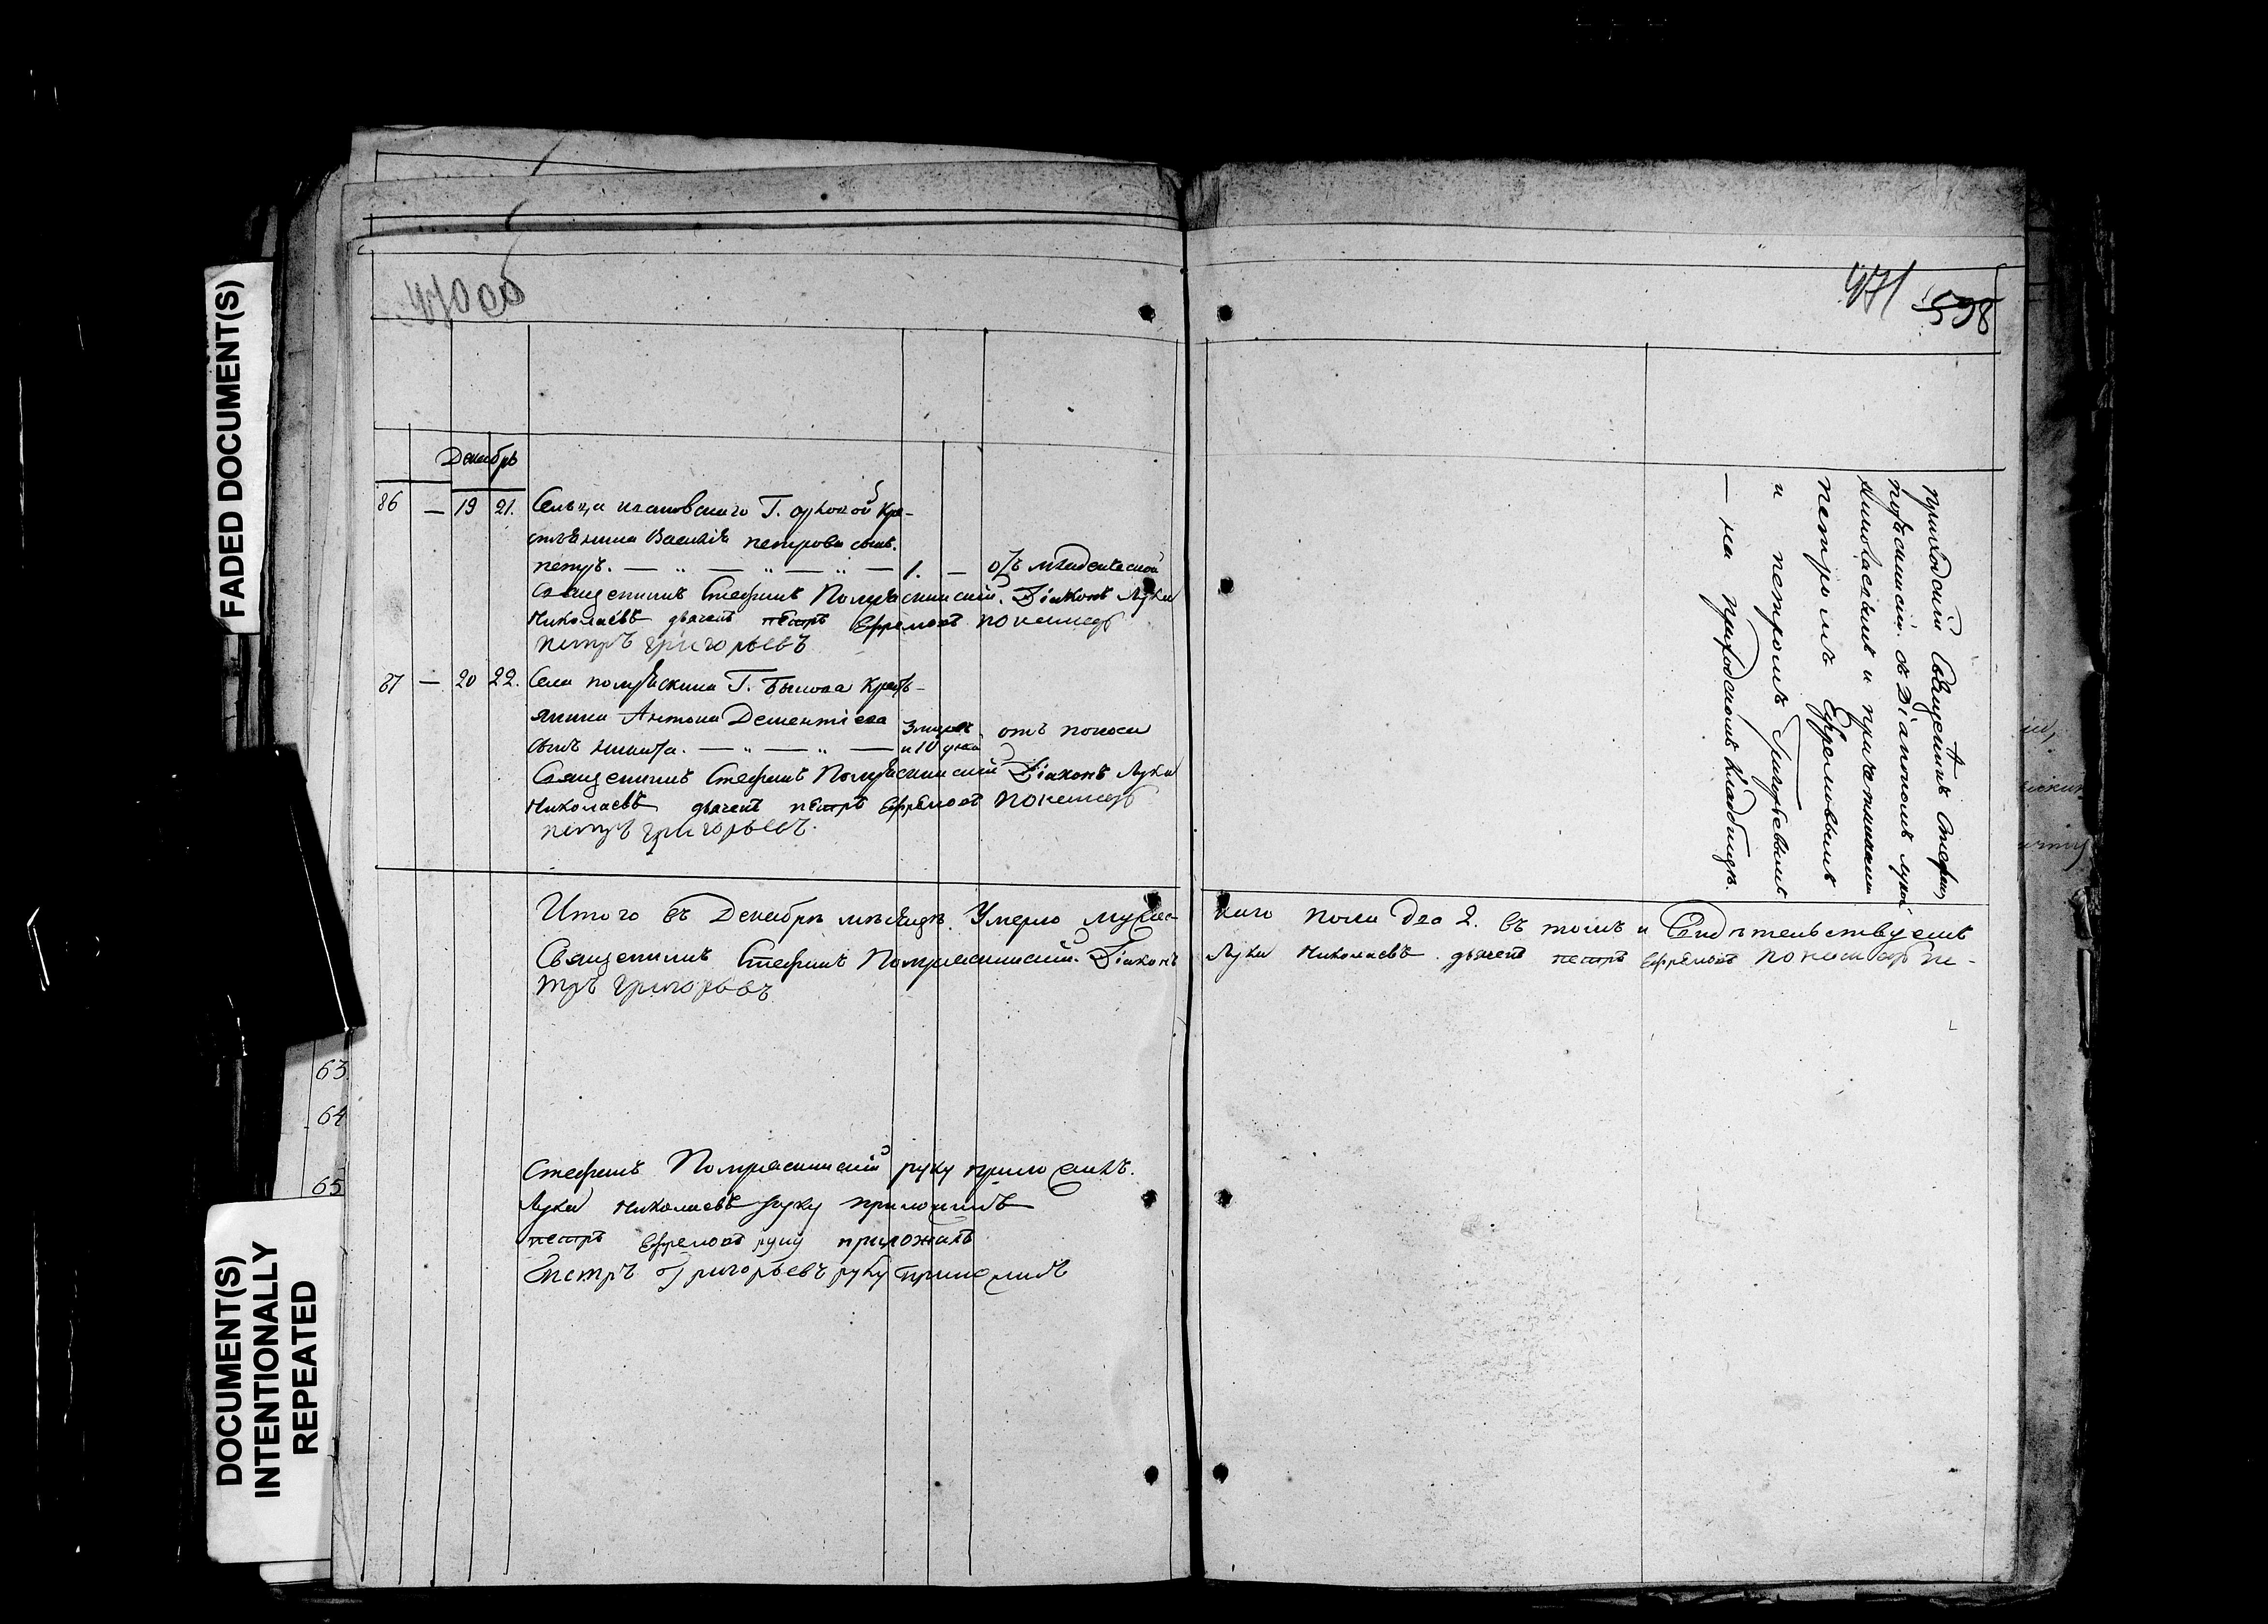 FADED DOCUMENT(S)
DOCUMENT(S)
INTENTIONALLY
REPEATED
63.
64
65
470 об
Декабрь
86 — 19 21. Сельца Г. Кре-
стьянина Василія петрова сынъ
петръ. — „ — „ — „ — 1. — отъ младенческой
Священникъ Стефанъ Діаконъ Лука
Николаевъ дьячекъ петръ Ефремовъ пономарь
петръ григорьевъ
87 — 20 22. Села Г. Крестъ-
янина Антона Дементіева
сынъ Никита. — „ — „ — 3 мѣсяц. и 10 дней отъ поноса
Священникъ Стефанъ Діаконъ Лука
Николаевъ дьячекъ петръ Ефремовъ пономарь
петръ григорьевъ.
Итого въ Декабрѣ мѣсяцѣ Умерло мужес-
Священникъ Стефанъ Діаконъ
тръ григорьевъ
Стефанъ руку приложилъ.
Лука Николаевъ руку приложилъ
петръ Ефремовъ руку приложилъ
Петръ Григорьевъ руку приложилъ
471 598
приходскій Священникъ Стефанъ
съ Діакономъ Лукой
Николаевымъ и причетниками
петромъ Ефремовымъ
и петромъ Григорьевымъ
— на приходскомъ кладбищѣ.
каго пола два 2. въ томъ и Свидѣтельствуемъ
Лука Николаевъ. дьячекъ петръ Ефремовъ пономарь пе-